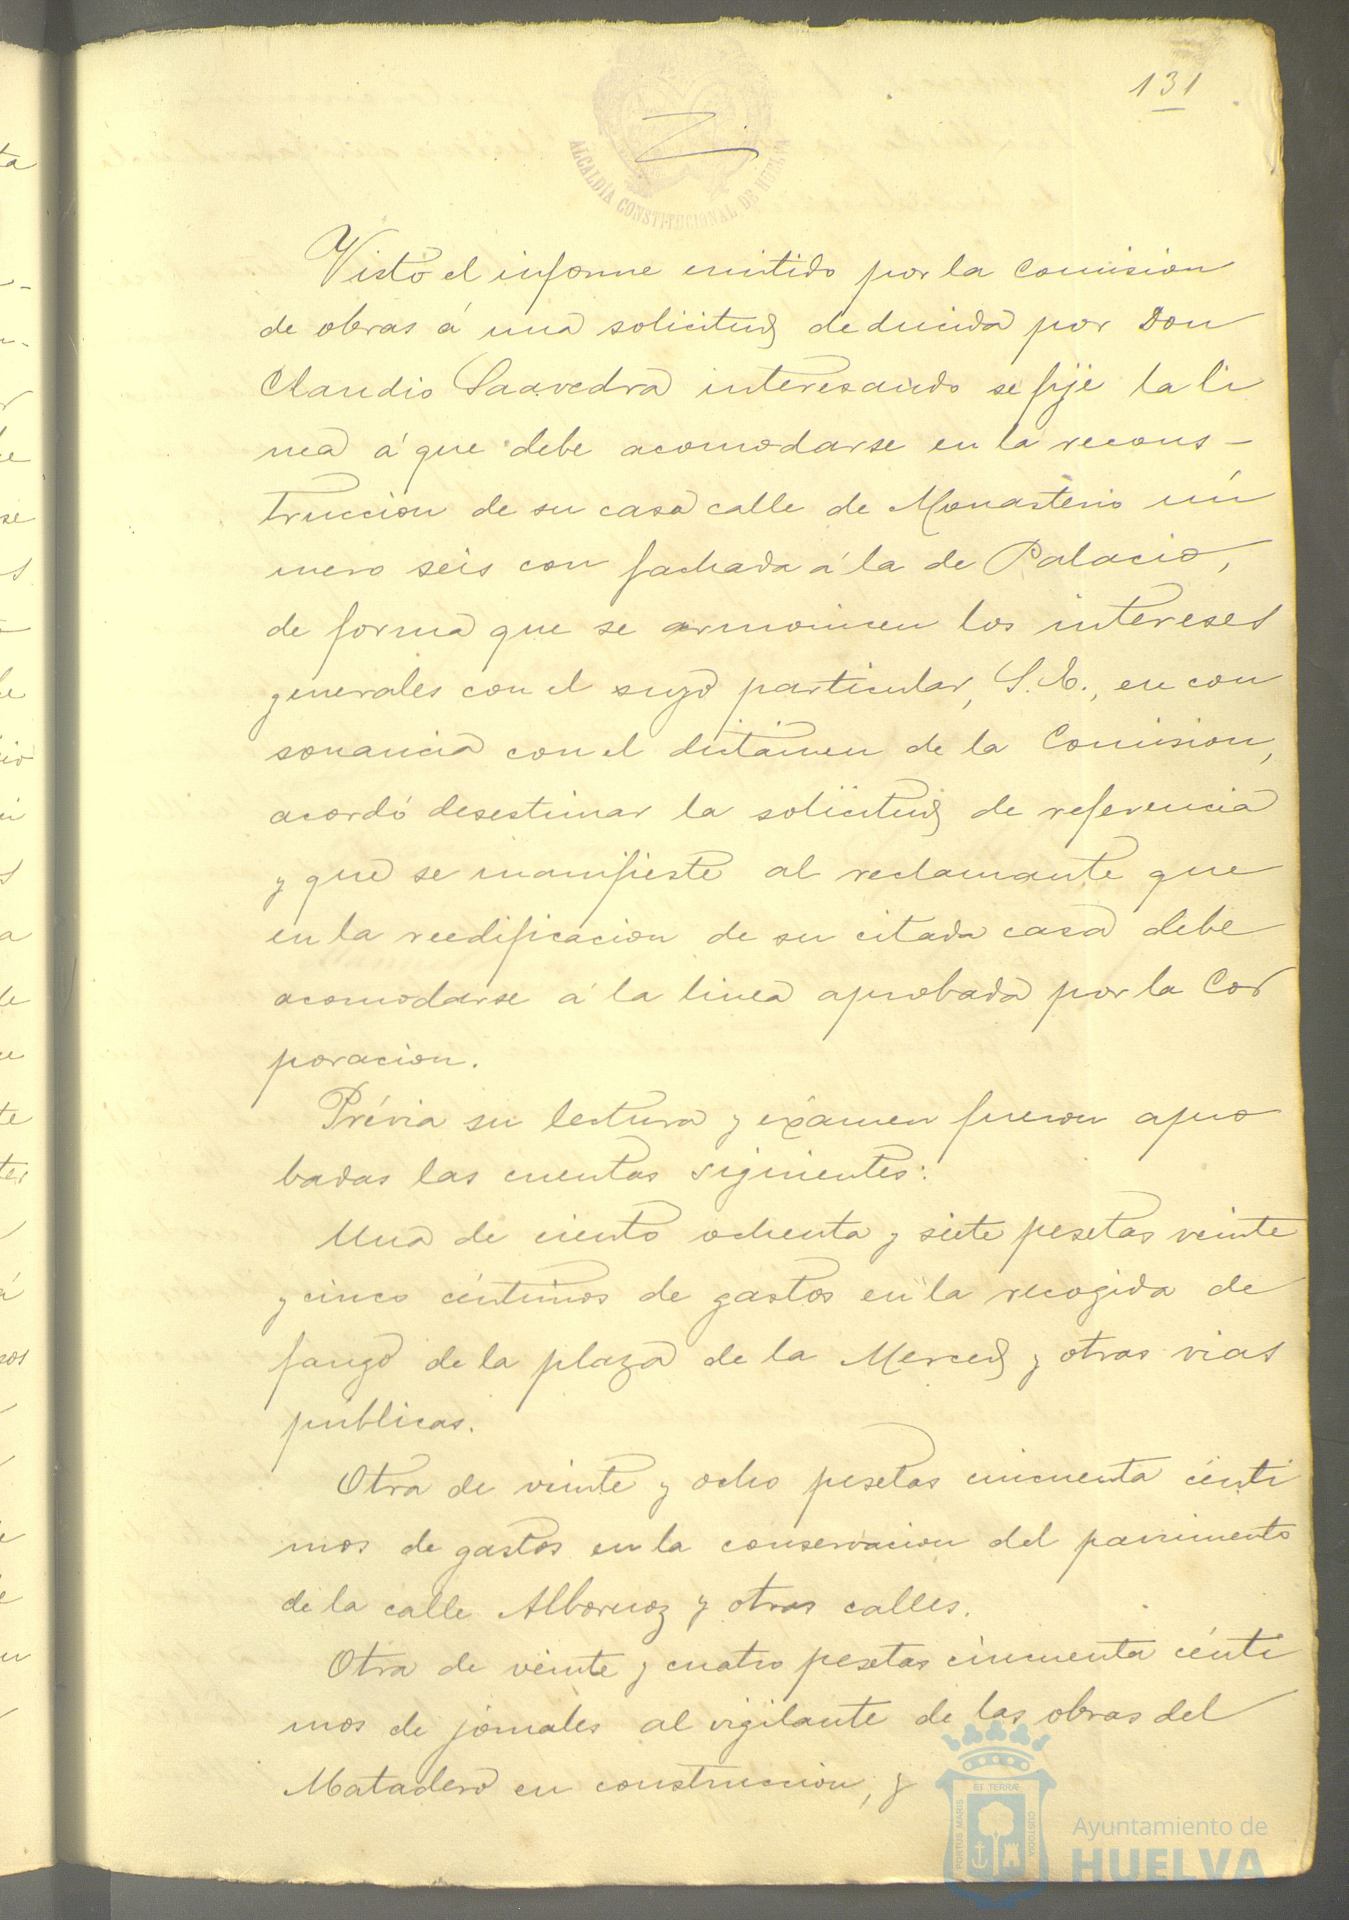 131
ALCALDÍA CONSTITUCIONAL DE HUELVA
Visto el informe emitido por la Comision
de obras á una solicitud deducida por Don
Claudio Saavedra interesando se fije la li
nea á que debe acomodarse en la recons-
truccion de su casa calle de Monasterio nú
mero seis con fachada á la de Palacio,
de forma que se armonicen los intereses
generales con el suyo particular, S.E., en con
sonancia con el dictámen de la Comision,
acordó desestimar la solicitud de referencia
y que se manifieste al reclamante que
en la reedificacion de su citada casa debe
acomodarse á la linea aprobada por la Cor
poracion.
Prévia su lectura y exámen fueron apro
badas las cuentas siguientes:
Una de ciento ochenta y siete pesetas veinte
y cinco céntimos de gastos en la recogida de
fango de la plaza de la Merced y otras vias
públicas.
Otra de veinte y ocho pesetas cincuenta cénti
mos de gastos en la conservacion del pavimento
de la calle Albornoz y otras calles.
Otra de veinte y cuatro pesetas cincuenta cénti
mos de jornales al vigilante de las obras del
Matadero en construccion, y
PORTUS MARIS
ET TERRÆ
CUSTODIA
Ayuntamiento de
HUELVA